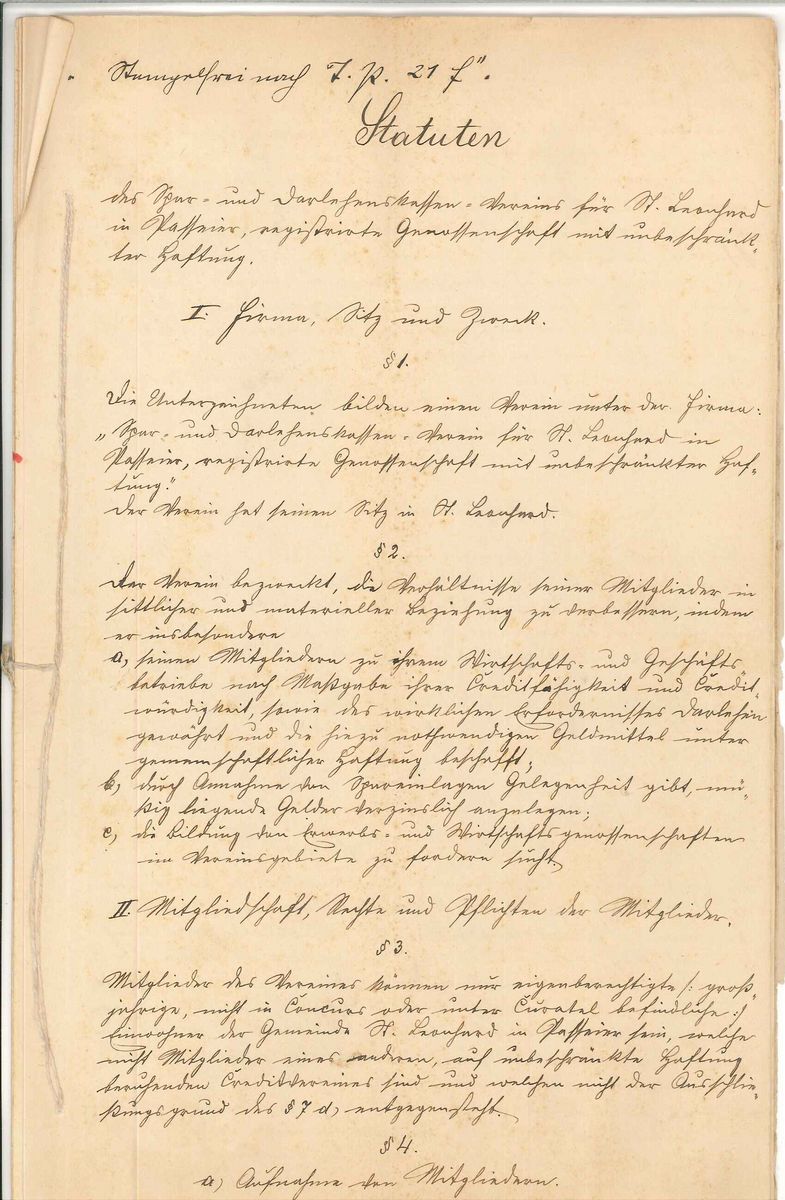 Stempelfrei nach T. P. 21 f".
Statuten
des Spar- und Darlehenskassen-Vereins für St. Leonhard
in Passeier, registrirte Genossenschaft mit unbeschränk-
ter Haftung.
I. Firma, Sitz und Zweck.
§ 1.
Die Unterzeichneten bilden einen Verein unter der Firma:
„Spar- und Darlehenskassen-Verein für St. Leonhard in
Passeier, registrirte Genossenschaft mit unbeschränkter Haf-
tung."
Der Verein hat seinen Sitz in St. Leonhard.
§ 2.
Der Verein bezweckt, die Verhältnisse seiner Mitglieder in
sittlicher und materieller Beziehung zu verbessern, indem
er insbesondere
a, seinen Mitgliedern zu ihrem Wirtschafts- und Geschäfts-
betriebe nach Maßgabe ihrer Creditfähigkeit und Credit-
würdigkeit, sowie des wirklichen Erfordernisses Darlehen
gewährt und die hiezu nothwendigen Geldmittel unter
gemeinschaftlicher Haftung beschafft;
b, durch Annahme von Spareinlagen Gelegenheit gibt, mü-
ßig liegende Gelder verzinslich anzulegen;
c, die Bildung von Erwerbs- und Wirtschaftsgenossenschaften
im Vereinsgebiete zu fördern sucht.
II. Mitgliedschaft, Rechte und Pflichten der Mitglieder.
§ 3.
Mitglieder des Vereines können nur eigenberechtigte /: groß-
jährige, nicht in Concurs oder unter Curatel befindliche :/
Einwohner der Gemeinde St. Leonhard in Passeier sein, welche
nicht Mitglieder eines anderen, auf unbeschränkte Haftung
beruhenden Creditvereines sind und welchen nicht der Ausschlie-
ßungsgrund des § 7 d, entgegensteht.
§ 4.
a) Aufnahme von Mitgliedern.